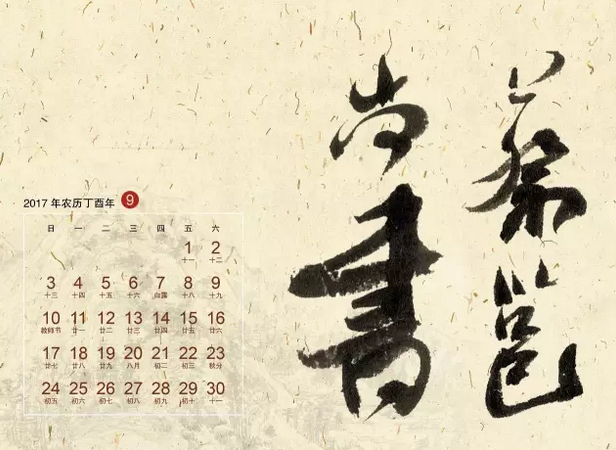 蔡邕
尚書
2017 年农历丁酉年 9
日 一 二 三 四 五 六
1 2
十一 十二
3 4 5 6 7 8 9
十三 十四 十五 十六 白露 十八 十九
10 11 12 13 14 15 16
教师节 廿一 廿二 廿三 廿四 廿五 廿六
17 18 19 20 21 22 23
廿七 廿八 廿九 八月 初二 初三 秋分
24 25 26 27 28 29 30
初五 初六 初七 初八 初九 初十 十一